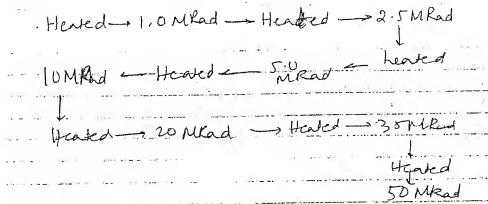 Heated → 1.0 MRad → Heated → 2.5 MRad
10 MRad ← Heated ← 5.0 MRad ← heated
Heated → 20 MRad → Heated → 35 MRad
Heated
50 MRad